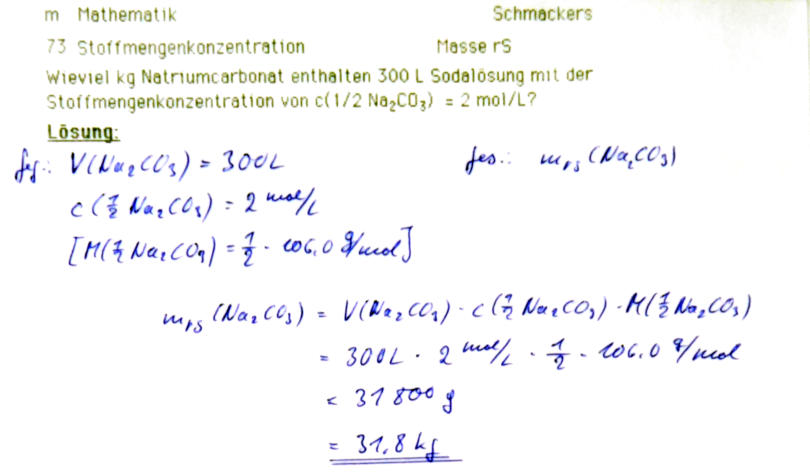 m Mathematik Schmackers
73 Stoffmengenkonzentration Masse rS
Wieviel kg Natriumcarbonat enthalten 300 L Sodalösung mit der
Stoffmengenkonzentration von c(1/2 Na₂CO₃) = 2 mol/L?
Lösung:
geg.: V(Na₂CO₃) = 300L ges.: mrS (Na₂CO₃)
c (1/2 Na₂CO₃) = 2 mol/L
[M(1/2 Na₂CO₃) = 1/2 · 106,0 g/mol]
mrS (Na₂CO₃) = V(Na₂CO₃) · c (1/2 Na₂CO₃) · M(1/2 Na₂CO₃)
= 300L · 2 mol/L · 1/2 · 106,0 g/mol
= 31800 g
= 31,8 kg